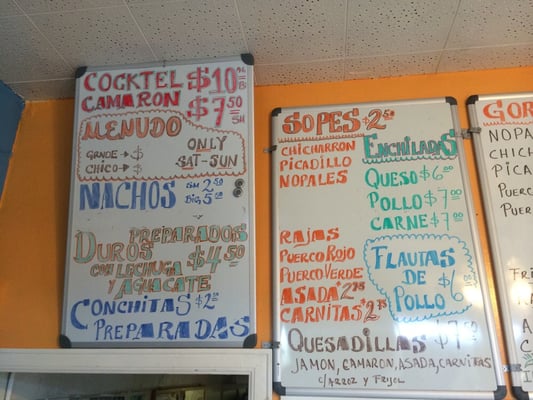 COCKTEL $10 B
CAMARON $7.50 SM
MENUDO
ONLY
SAT-SUN
GRNDE → $
CHICO → $
NACHOS SM 2.50
BIG 5.50
DUROS PREPARADOS
CON LECHUGA $4.50
Y AGUACATE
CONCHITAS $2.25
PREPARADAS
SOPES $2.50
CHICHARRON
PICADILLO
NOPALES
RAJAS
PUERCO ROJO
PUERCO VERDE
ASADA $2.75
CARNITAS $2.75
ENCHILADAS
QUESO $6.00
POLLO $7.00
CARNE $7.00
FLAUTAS
DE $6
POLLO
QUESADILLAS $7.50
JAMON, CAMARON, ASADA, CARNITAS
C/ARROZ Y FRIJOL
GOR
NOPA
CHICH
PICA
PUERC
PUER